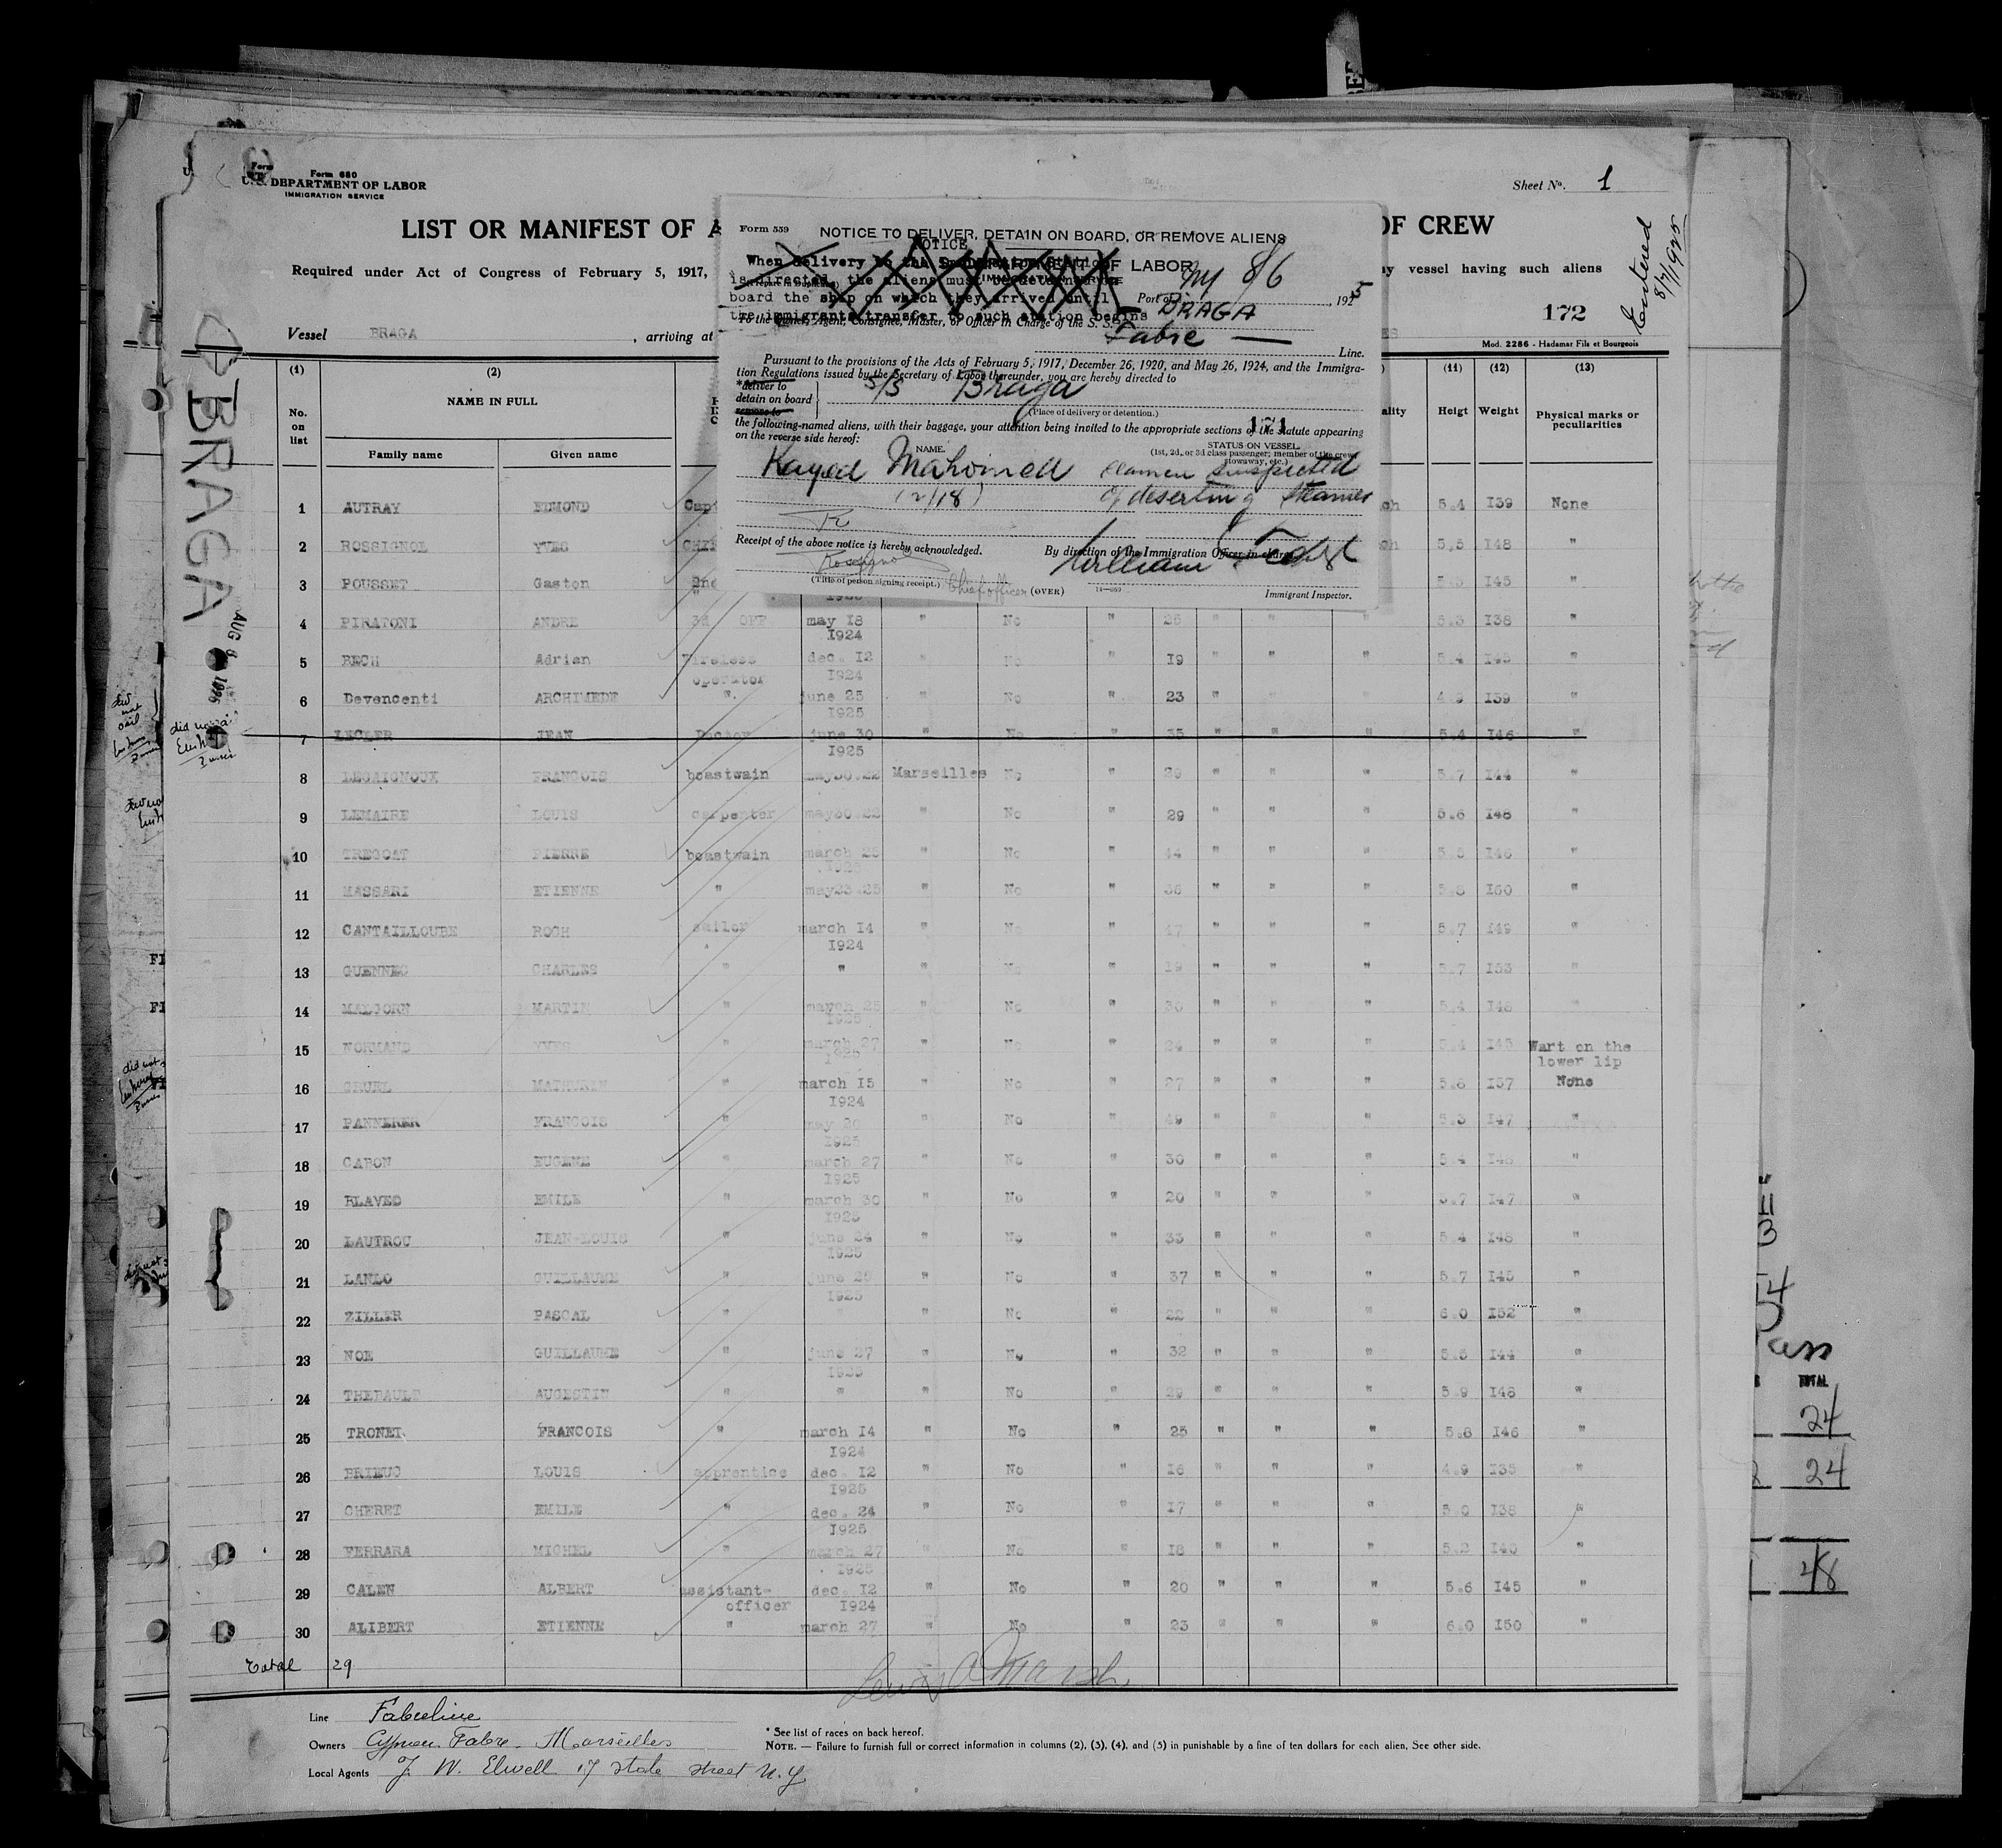 Form 680
U. S. DEPARTMENT OF LABOR
IMMIGRATION SERVICE
Sheet No. 1
LIST OR MANIFEST OF A
OF CREW
Required under Act of Congress of February 5, 1917,
y vessel having such aliens
172
Entered 8/7/1925
Vessel BRAGA , arriving at
Mod. 2286 - Hadamar Fils et Bourgeois
BRAGA
AUG 6 1925
Form 559
NOTICE TO DELIVER, DETAIN ON BOARD, OR REMOVE ALIENS
NOTICE
When delivery to the
OF LABOR
is directed, the aliens must be detained on
board the ship on which they arrived until
the immigrants transfer to such station begins
Port of NY 8/6, 1925
To the Owner, Agent, Consignee, Master, or Officer in Charge of the S. S. BRAGA
Fabre Line.
Pursuant to the provisions of the Acts of February 5, 1917, December 26, 1920, and May 26, 1924, and the Immigra-
tion Regulations issued by the Secretary of Labor thereunder, you are hereby directed to
*deliver to
detain on board
remove to
S/S Braga
(Place of delivery or detention.)
171
the following-named aliens, with their baggage, your attention being invited to the appropriate sections of the statute appearing
on the reverse side hereof:
NAME.
STATUS ON VESSEL.
(1st, 2d, or 3d class passenger; member of the crew, stowaway, etc.)
Kayed Mahomed seamen suspected
(2/18) of deserting steamer
Receipt of the above notice is hereby acknowledged.
By direction of the Immigration Officer in charge.
Rossignol
William
(Title of person signing receipt.) Chief officer (OVER)
14—669
Immigrant Inspector.
(1) (2) (11) (12) (13)
No. on list
NAME IN FULL
Family name Given name
ality Heigt Weight Physical marks or peculiarities
1 AUTRAY EDMOND Cap ch 5.4 139 None
2 ROSSIGNOL YVES 5,5 148 "
3 POUSSET Gaston 2nd 5.5 145 "
4 PIRATONI ANDRE 3d OFF may 18 1924 " No " 25 " " " 5.3 138 "
5 BECH Adrian Wireless operator dec. 12 1924 " No " 19 " " " 5.4 145 "
6 Devencenti ARCHIMEDE " june 25 1925 " No " 23 " " " 4.9 139 "
7 LECLER JEAN Doctor june 30 1925 " No " 35 " " " 5.4 146 "
8 LEGAIGNOUX FRANCOIS boastwain may30.22 Marseilles No " 29 " " " 5.7 144 "
9 LEMAIRE LOUIS carpenter may30.22 " No " 29 " " " 5.6 148 "
10 TREGOAT PIERRE boastwain march 25 1925 " No " 44 " " " 5.5 146 "
11 MASSARI ETIENNE " may23.25 " No " 36 " " " 5.8 160 "
12 CANTAILLOUBE ROCH sailor march 14 1924 " No " 47 " " " 5.7 149 "
13 GUENNEC CHARLES " " " No " 19 " " " 5.7 153 "
14 MALGORN MARTIN " march 25 1925 " No " 30 " " " 5.4 148 "
15 NORMAND YVES " march 27 1925 " No " 24 " " " 5.4 145 Wart on the lower lip
16 GRUEL MATHURIN " march 15 1924 " No " 27 " " " 5.8 157 None
17 PANNERER FRANCOIS " may 20 1925 " No " 49 " " " 5.3 147 "
18 CARON EUGENE " march 27 1925 " No " 30 " " " 5.4 145 "
19 BLAVED EMILE " march 30 1925 " No " 20 " " " 5.7 147 "
20 LAUTROU JEAN-LOUIS " june 24 1925 " No " 33 " " " 5.4 148 "
21 LANLO GUILLAUME " june 26 1925 " No " 37 " " " 5.7 145 "
22 ZILLER PASCAL " " " No " 22 " " " 6.0 152 "
23 NOE GUILLAUME " june 27 1925 " No " 32 " " " 5.5 144 "
24 THEBAULT AUGUSTIN " " " No " 29 " " " 5.9 148 "
25 TRONEI FRANCOIS " march 14 1924 " No " 25 " " " 5.8 146 "
26 BRIEUC LOUIS apprentice dec. 12 1925 " No " 16 " " " 4.9 135 "
27 CHERET EMILE " dec. 24 1925 " No " 17 " " " 5.0 138 "
28 FERRARA MICHEL " march 27 1925 " No " 18 " " " 5.2 146 "
29 CALEN ALBERT assistant officer dec. 12 1924 " No " 20 " " " 5.6 145 "
30 ALIBERT ETIENNE " march 27 " No " 23 " " " 6.0 150 "
Total 29
Line Fabreline
Owners Cyprien Fabre. Marseilles
Local Agents J. W. Elwell 17 state street N.Y
* See list of races on back hereof.
NOTE. — Failure to furnish full or correct information in columns (2), (3), (4), and (5) in punishable by a fine of ten dollars for each alien. See other side.
TOTAL
24
24
48